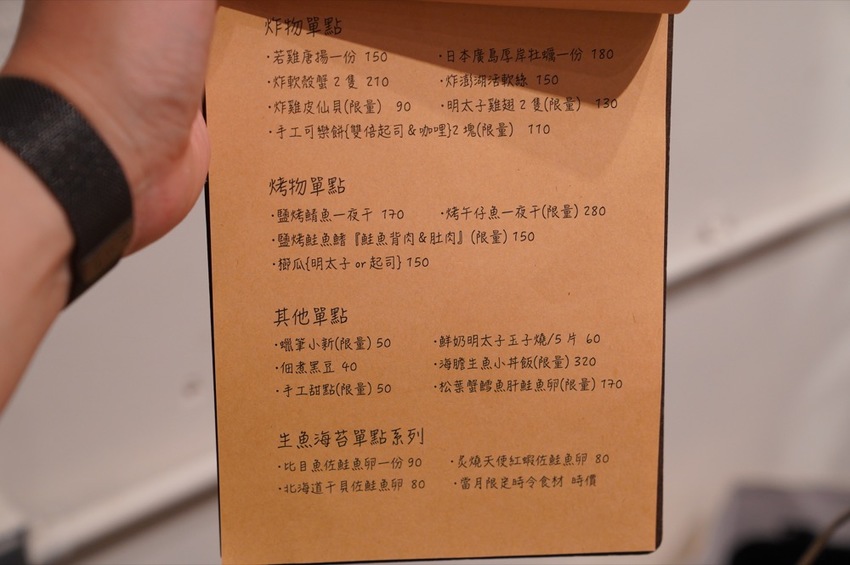 炸物單點
·若雞唐揚一份 150 ·日本廣島厚岸牡蠣一份 180
·炸軟殼蟹 2 隻 210 ·炸澎湖活軟絲 150
·炸雞皮仙貝(限量) 90 ·明太子雞翅 2 隻(限量) 130
·手工可樂餅{雙倍起司＆咖哩}2 塊(限量) 110
烤物單點
·鹽烤鯖魚一夜干 170 ·烤午仔魚一夜干(限量) 280
·鹽烤鮭魚鰭『鮭魚背肉＆肚肉』(限量) 150
·櫛瓜{明太子 or 起司} 150
其他單點
·蠟筆小新(限量) 50 ·鮮奶明太子玉子燒/5 片 60
·佃煮黑豆 40 ·海膽生魚小丼飯(限量) 320
·手工甜點(限量) 50 ·松葉蟹鱈魚肝鮭魚卵(限量) 170
生魚海苔單點系列
·比目魚佐鮭魚卵一份 90 ·炙燒天使紅蝦佐鮭魚卵 80
·北海道干貝佐鮭魚卵 80 ·當月限定時令食材 時價